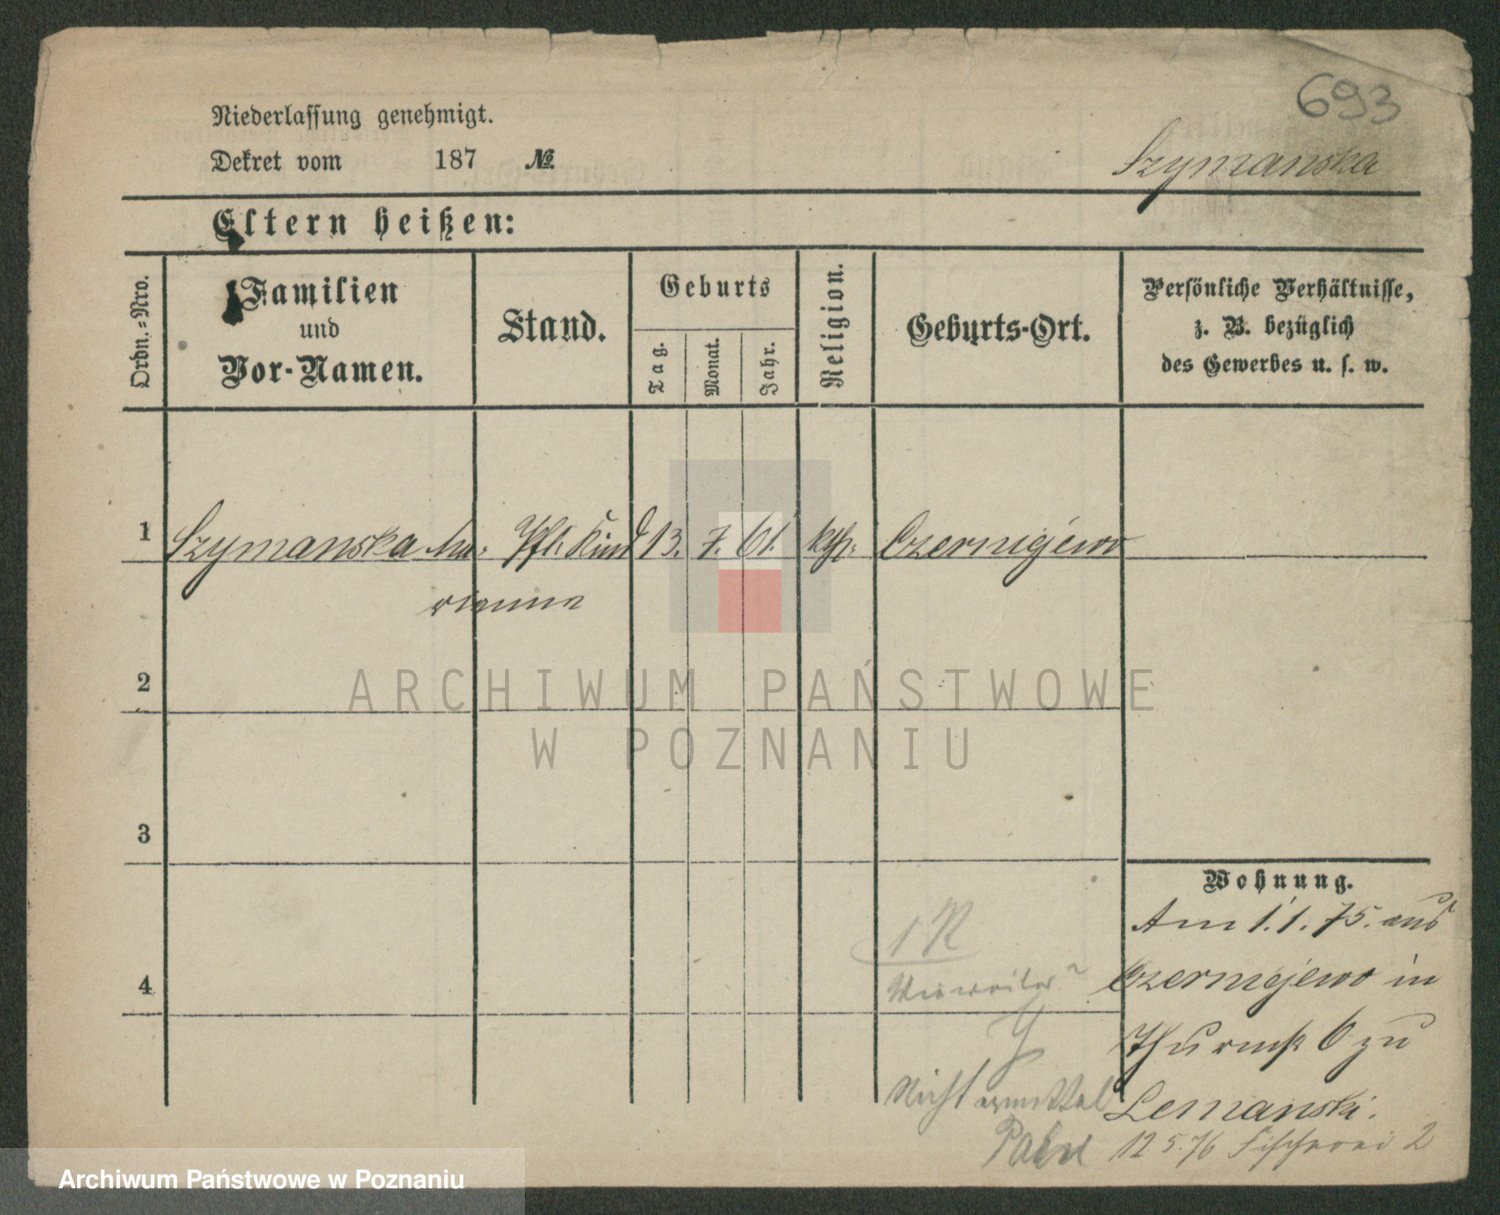 693
Niederlassung genehmigt.
Dekret vom 187 №
Szymanska
Eltern heißen:
Ordn.=Nro.
Familien
und
Vor-Namen.
Stand.
Geburts
Tag.
Monat.
Jahr.
Religion.
Geburts-Ort.
Persönliche Verhältnisse,
z. B. bezüglich
des Gewerbes u. s. w.
1 Szymanska Ma- Pfl. Kind 13. 7. 61. kth. Czerniejewo
rianna
2
ARCHIWUM PAŃSTWOWE
W POZNANIU
3
Wohnung.
Am 1.1.75. aus
Czerniejewo in
4
Thurmstr 6 zu
Lemanski.
12 5. 76 Fischerei 2
1 R
Nicht
Archiwum Państwowe w Poznaniu